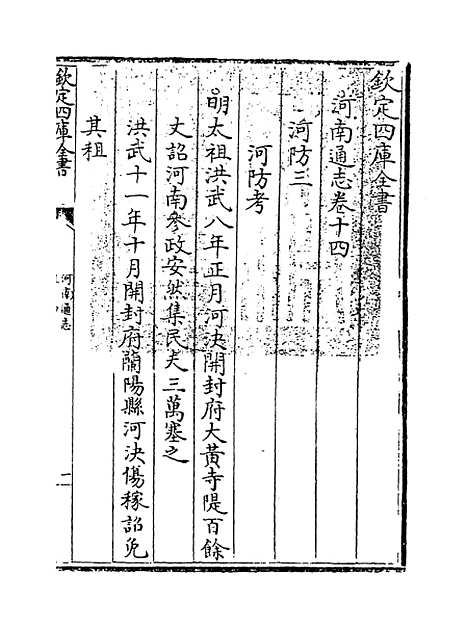 欽定四庫全書
河南通志卷十四
河防三
河防考
明太祖洪武八年正月河決開封府大黃寺隄百餘
丈詔河南參政安然集民夫三萬塞之
洪武十一年十月開封府蘭陽縣河決傷稼詔免
其租
欽定四庫全書
河南通志